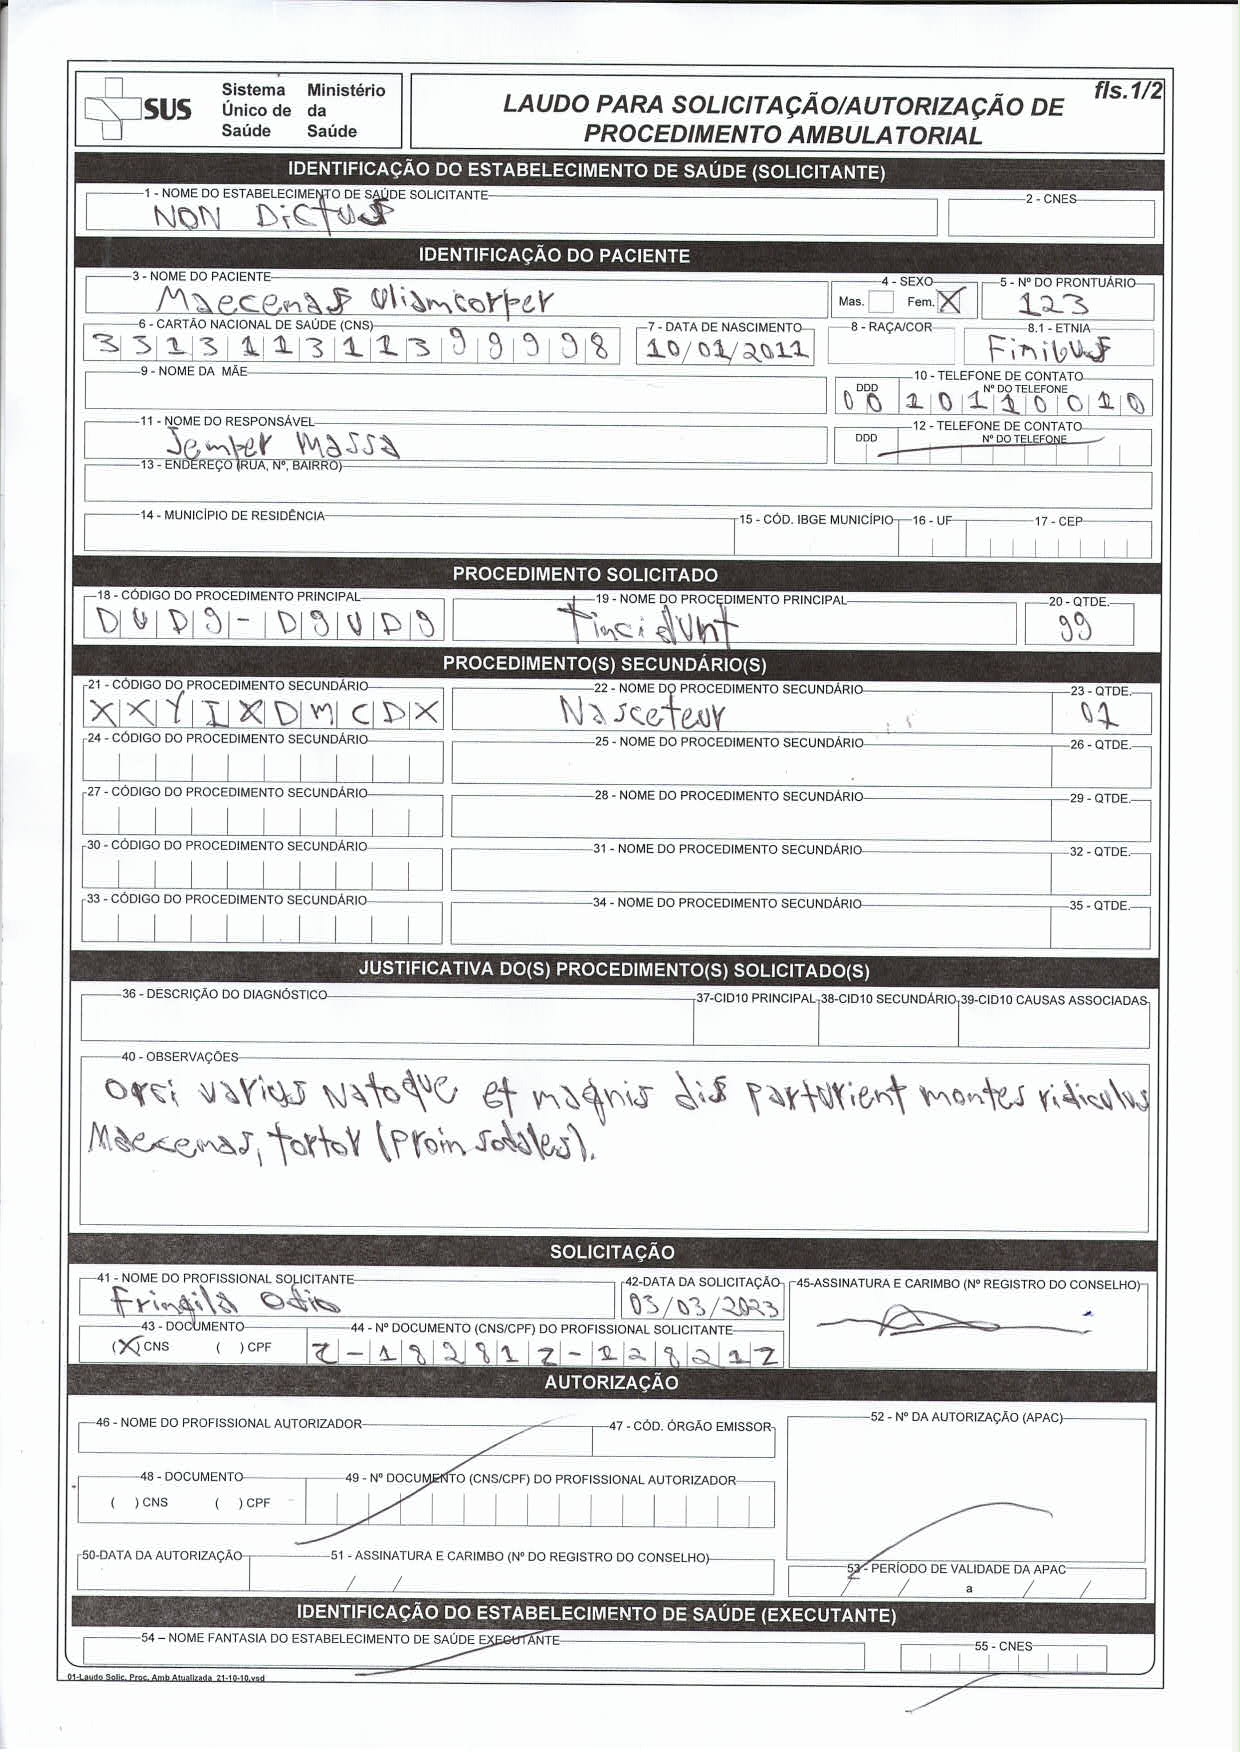 SUS
Sistema Único de Saúde
Ministério da Saúde
LAUDO PARA SOLICITAÇÃO/AUTORIZAÇÃO DE PROCEDIMENTO AMBULATORIAL
fls.1/2
IDENTIFICAÇÃO DO ESTABELECIMENTO DE SAÚDE (SOLICITANTE)
1 - NOME DO ESTABELECIMENTO DE SAÚDE SOLICITANTE
2 - CNES
NON Dictus
IDENTIFICAÇÃO DO PACIENTE
3 - NOME DO PACIENTE
4 - SEXO
5 - Nº DO PRONTUÁRIO
Maecenas Ullamcorper
Mas. Fem. X
123
6 - CARTÃO NACIONAL DE SAÚDE (CNS)
7 - DATA DE NASCIMENTO
8 - RAÇA/COR
8.1 - ETNIA
331311311399998
10/01/2011
Finibus
9 - NOME DA MÃE
10 - TELEFONE DE CONTATO
DDD
Nº DO TELEFONE
00 10110010
11 - NOME DO RESPONSÁVEL
12 - TELEFONE DE CONTATO
Semper Massa
DDD
Nº DO TELEFONE
13 - ENDEREÇO (RUA, Nº, BAIRRO)
14 - MUNICÍPIO DE RESIDÊNCIA
15 - CÓD. IBGE MUNICÍPIO
16 - UF
17 - CEP
PROCEDIMENTO SOLICITADO
18 - CÓDIGO DO PROCEDIMENTO PRINCIPAL
19 - NOME DO PROCEDIMENTO PRINCIPAL
20 - QTDE.
Tincidunt
99
PROCEDIMENTO(S) SECUNDÁRIO(S)
21 - CÓDIGO DO PROCEDIMENTO SECUNDÁRIO
22 - NOME DO PROCEDIMENTO SECUNDÁRIO
23 - QTDE.
XXYIXDMCDX
Nasceteur
01
24 - CÓDIGO DO PROCEDIMENTO SECUNDÁRIO
25 - NOME DO PROCEDIMENTO SECUNDÁRIO
26 - QTDE.
27 - CÓDIGO DO PROCEDIMENTO SECUNDÁRIO
28 - NOME DO PROCEDIMENTO SECUNDÁRIO
29 - QTDE.
30 - CÓDIGO DO PROCEDIMENTO SECUNDÁRIO
31 - NOME DO PROCEDIMENTO SECUNDÁRIO
32 - QTDE.
33 - CÓDIGO DO PROCEDIMENTO SECUNDÁRIO
34 - NOME DO PROCEDIMENTO SECUNDÁRIO
35 - QTDE.
JUSTIFICATIVA DO(S) PROCEDIMENTO(S) SOLICITADO(S)
36 - DESCRIÇÃO DO DIAGNÓSTICO
37-CID10 PRINCIPAL
38-CID10 SECUNDÁRIO
39-CID10 CAUSAS ASSOCIADAS
40 - OBSERVAÇÕES
Orci varius Natoque et magnis dis parturient montes ridiculus
Maecenas, tortor (Proin sodales).
SOLICITAÇÃO
41 - NOME DO PROFISSIONAL SOLICITANTE
42-DATA DA SOLICITAÇÃO
45-ASSINATURA E CARIMBO (Nº REGISTRO DO CONSELHO)
Fringila Odio
03/03/2023
43 - DOCUMENTO
44 - Nº DOCUMENTO (CNS/CPF) DO PROFISSIONAL SOLICITANTE
(X) CNS ( ) CPF
Z-182812-128212
AUTORIZAÇÃO
46 - NOME DO PROFISSIONAL AUTORIZADOR
47 - CÓD. ÓRGÃO EMISSOR
52 - Nº DA AUTORIZAÇÃO (APAC)
48 - DOCUMENTO
49 - Nº DOCUMENTO (CNS/CPF) DO PROFISSIONAL AUTORIZADOR
( ) CNS ( ) CPF
50-DATA DA AUTORIZAÇÃO
51 - ASSINATURA E CARIMBO (Nº DO REGISTRO DO CONSELHO)
/ /
53 - PERÍODO DE VALIDADE DA APAC
/ / a / /
IDENTIFICAÇÃO DO ESTABELECIMENTO DE SAÚDE (EXECUTANTE)
54 – NOME FANTASIA DO ESTABELECIMENTO DE SAÚDE EXECUTANTE
55 - CNES
01-Laudo Solic. Proc. Amb Atualizada 21-10-10.vsd